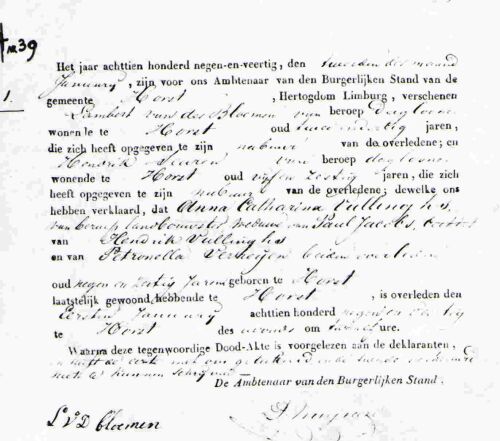 № 39
Het jaar achttien honderd negen-en-veertig, den tweeden der maand
January, zijn voor ons Ambtenaar van den Burgerlijken Stand van de
1.
gemeente Horst, Hertogdom Limburg, verschenen
Lambert van der Bloemen van beroep daglooner
wonende te Horst oud twee en dertig jaren,
die zich heeft opgegeven te zijn nabuur van de overledene; en
Hendrik van beroep daglooner
wonende te Horst oud vijf en zestig jaren, die zich
heeft opgegeven te zijn nabuur van de overledene; dewelke ons
hebben verklaard, dat Anna Catharina Vullinghs
van beroep landbouwster weduwe van Paul Jacobs, dochter
van Hendrik Vullinghs
en van Petronella Verheijen beiden overleden
oud negen en zestig jaren geboren te Horst
laatstelijk gewoond hebbende te Horst, is overleden den
Eersten January achttien honderd negen en veertig
te Horst des avonds om ure.
Waarna deze tegenwoordige Dood-Akte is voorgelezen aan de deklaranten,
en heeft de eerste met ons geteekend en de tweede verklaard
niet te kunnen schrijven
De Ambtenaar van den Burgerlijken Stand,
L v D bloemen